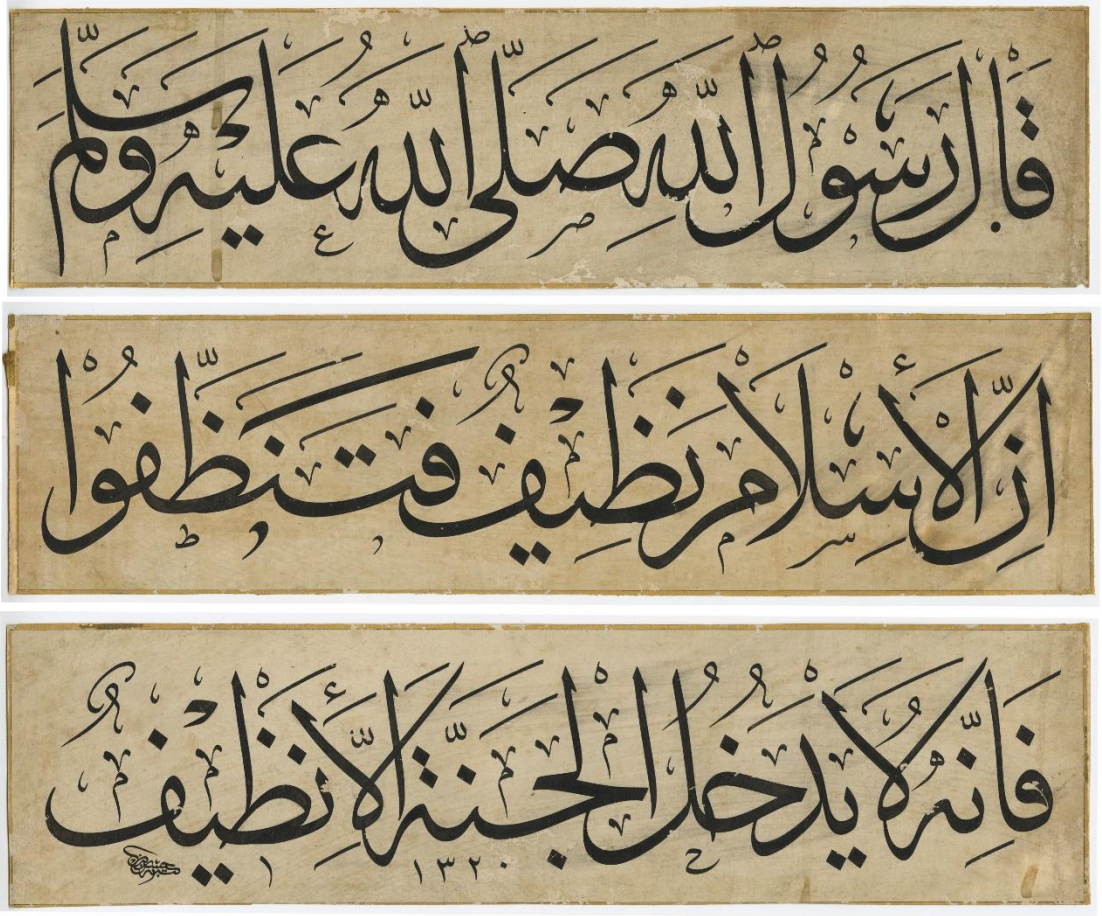 قَالَ رَسُولُ اللّٰهِ صَلَّى اللّٰهُ عَلَيْهِ وَسَلَّمَ
اِنَّ الْأِسْلَامَ نَظِيفٌ فَتَنَظَّفُوْا
فَاِنَّهُ لَا يَدْخُلُ الْجَنَّةَ اِلَّا نَظِيفٌ
١٣٢٠